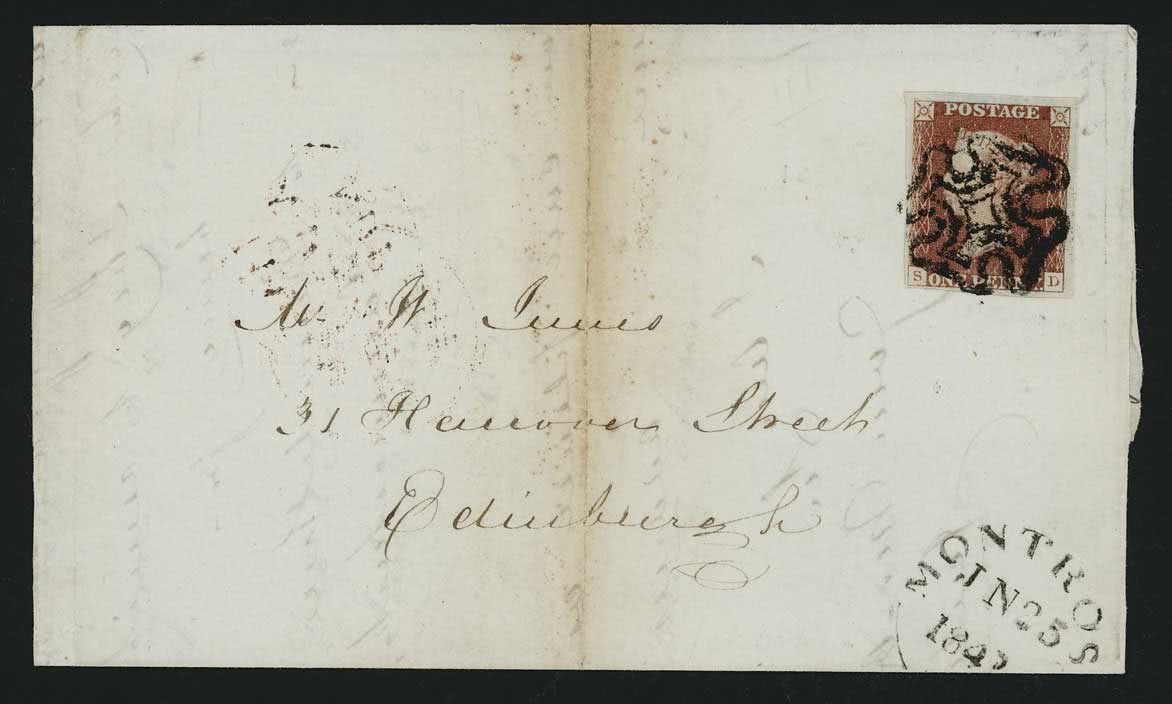 POSTAGE
S ONE PENNY. D
Mr W. Innes
31 Hanover Street
Edinburgh
MONTROS
JN 25